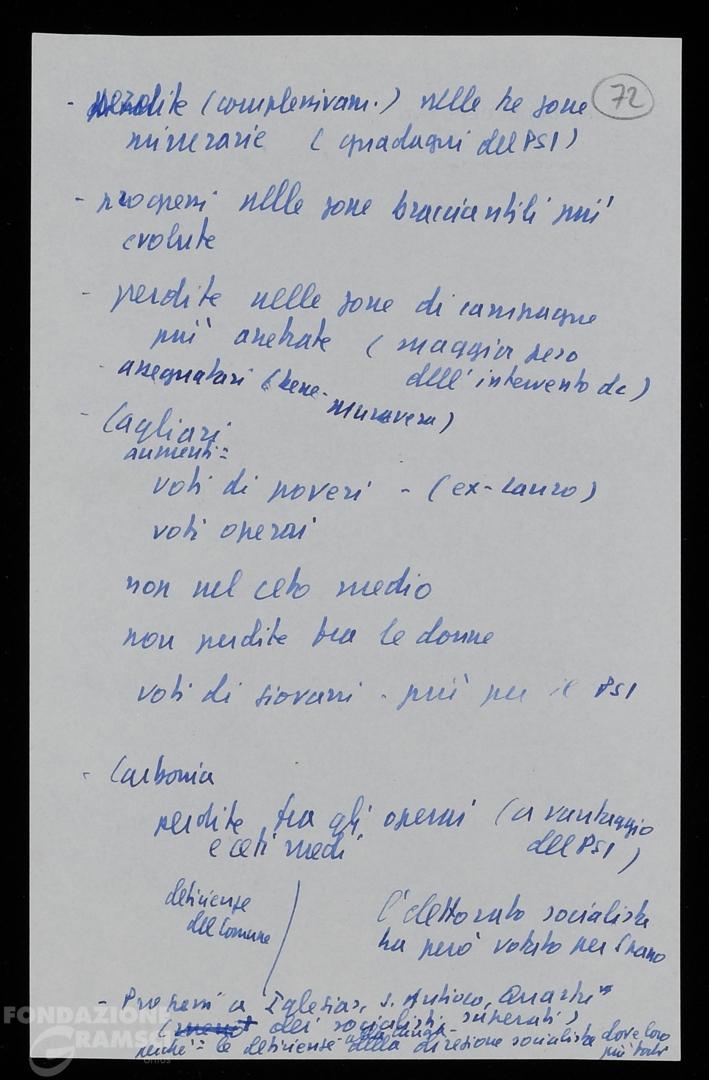 72
- perdite (complessivam.) nelle tre zone
minerarie (guadagni del PSI)
- progressi nelle zone bracciantili più
evolute
- perdite nelle zone di campagne
più arretrate (maggior peso
dell'intervento dc)
- assegnatari (bene-
Muravera)
- Cagliari
aumenti =
voti di poveri - (ex-Lauro)
voti operai
non nel ceto medio
non perdite tra le donne
voti di giovani - più per il PSI
- Carbonia
perdite tra gli operai (a vantaggio
e ceti medi del PSI)
deficienze
del Comune
l'elettorato socialista
ha però votato per Spano
- Progressi a Iglesias, S. Antioco, Quartu
( dei socialisti superati)
perché = le deficienze della direzione socialista dove loro
più forti
FONDAZIONE
GRAMSCI
onlus